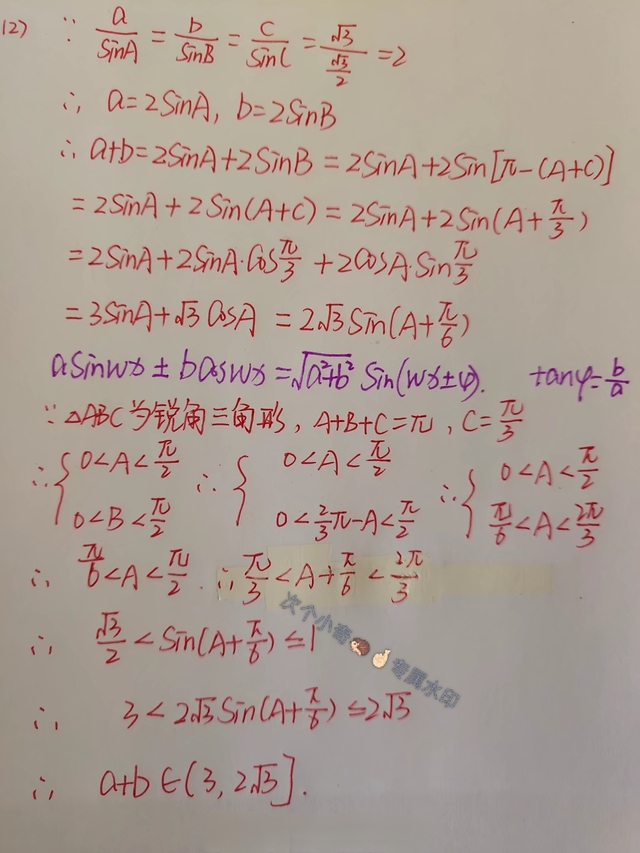 (2) ∵ a/SinA = b/SinB = c/SinC = √3/(√3/2) = 2
∴ a=2SinA, b=2SinB
∴ a+b=2SinA+2SinB = 2SinA+2Sin[π-(A+C)]
=2SinA+2Sin(A+C) = 2SinA+2Sin(A+π/3)
=2SinA+2SinA·Cosπ/3 +2CosA·Sinπ/3
=3SinA+√3CosA = 2√3Sin(A+π/6)
aSinwx ± bCoswx=√(a²+b²) Sin(wx±φ). tanφ=b/a
∵ △ABC为锐角三角形, A+B+C=π, C=π/3
∴ { 0<A<π/2 ∴ { 0<A<π/2 ∴ { 0<A<π/2
0<B<π/2 0<2/3π-A<π/2 π/6<A<2π/3
∴ π/6<A<π/2. ∴ π/3<A+π/6<2π/3
∴ √3/2<Sin(A+π/6)≤1
次个小奇 专属水印
∴ 3<2√3Sin(A+π/6)≤2√3
∴ a+b∈(3, 2√3].